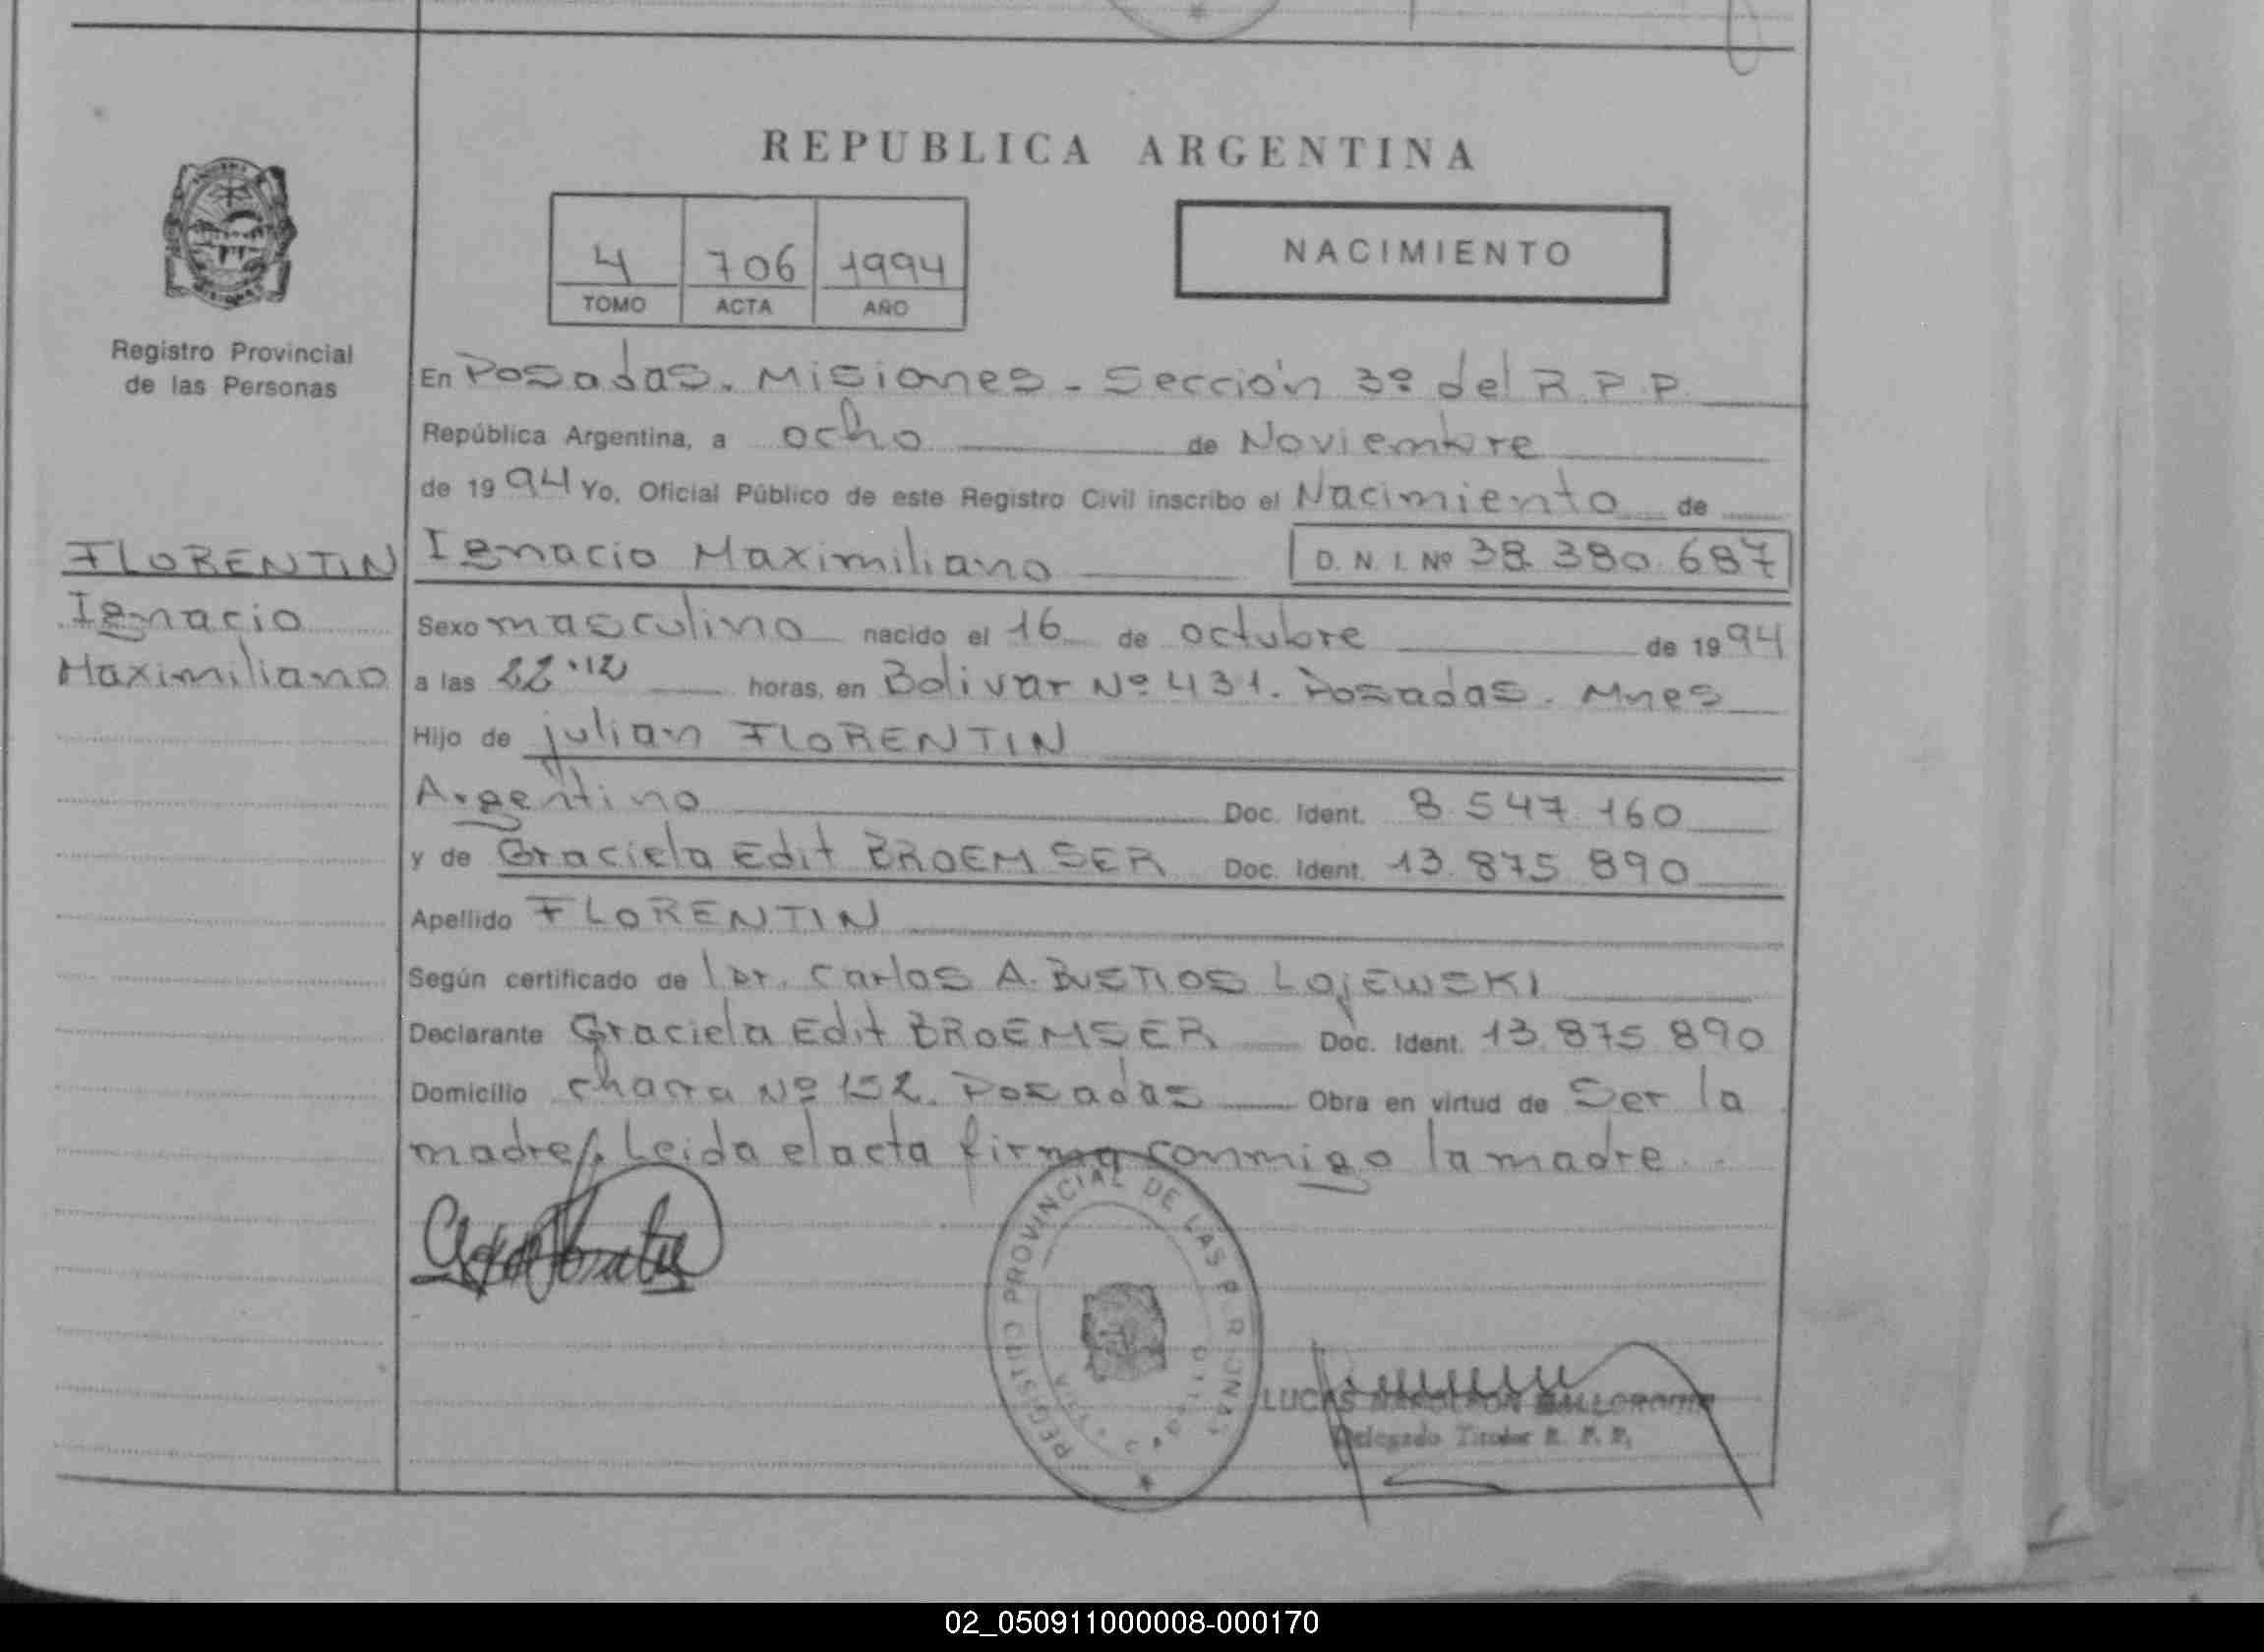 REPUBLICA ARGENTINA
4 706 1994
TOMO ACTA AÑO
NACIMIENTO
Registro Provincial
de las Personas
FLORENTIN
Ignacio
Maximiliano
En Posadas. Misiones - Sección 3º del R.P.P.
República Argentina, a ocho de Noviembre
de 1994 Yo, Oficial Público de este Registro Civil inscribo el Nacimiento de
Ignacio Maximiliano D.N.I. Nº 38.380.687
Sexo masculino nacido el 16 de octubre de 1994
a las 22.12 horas, en Bolivar Nº 431. Posadas. Mnes
Hijo de julian FLORENTIN
Argentino Doc. Ident. 8.547.160
y de Graciela Edit BROEMSER Doc. Ident. 13.875.890
Apellido FLORENTIN
Según certificado de Dr. Carlos A. BUSTOS LOJEWSKI
Declarante Graciela Edit BROEMSER Doc. Ident. 13.875.890
Domicilio chacra Nº 152. Posadas Obra en virtud de Ser la
madre. Leida el acta firma conmigo la madre.
REGISTRO PROVINCIAL DE LAS P R ONAS
LUCAS NAPOLEON
Delegado Titular R. P. P.
02_050911000008-000170